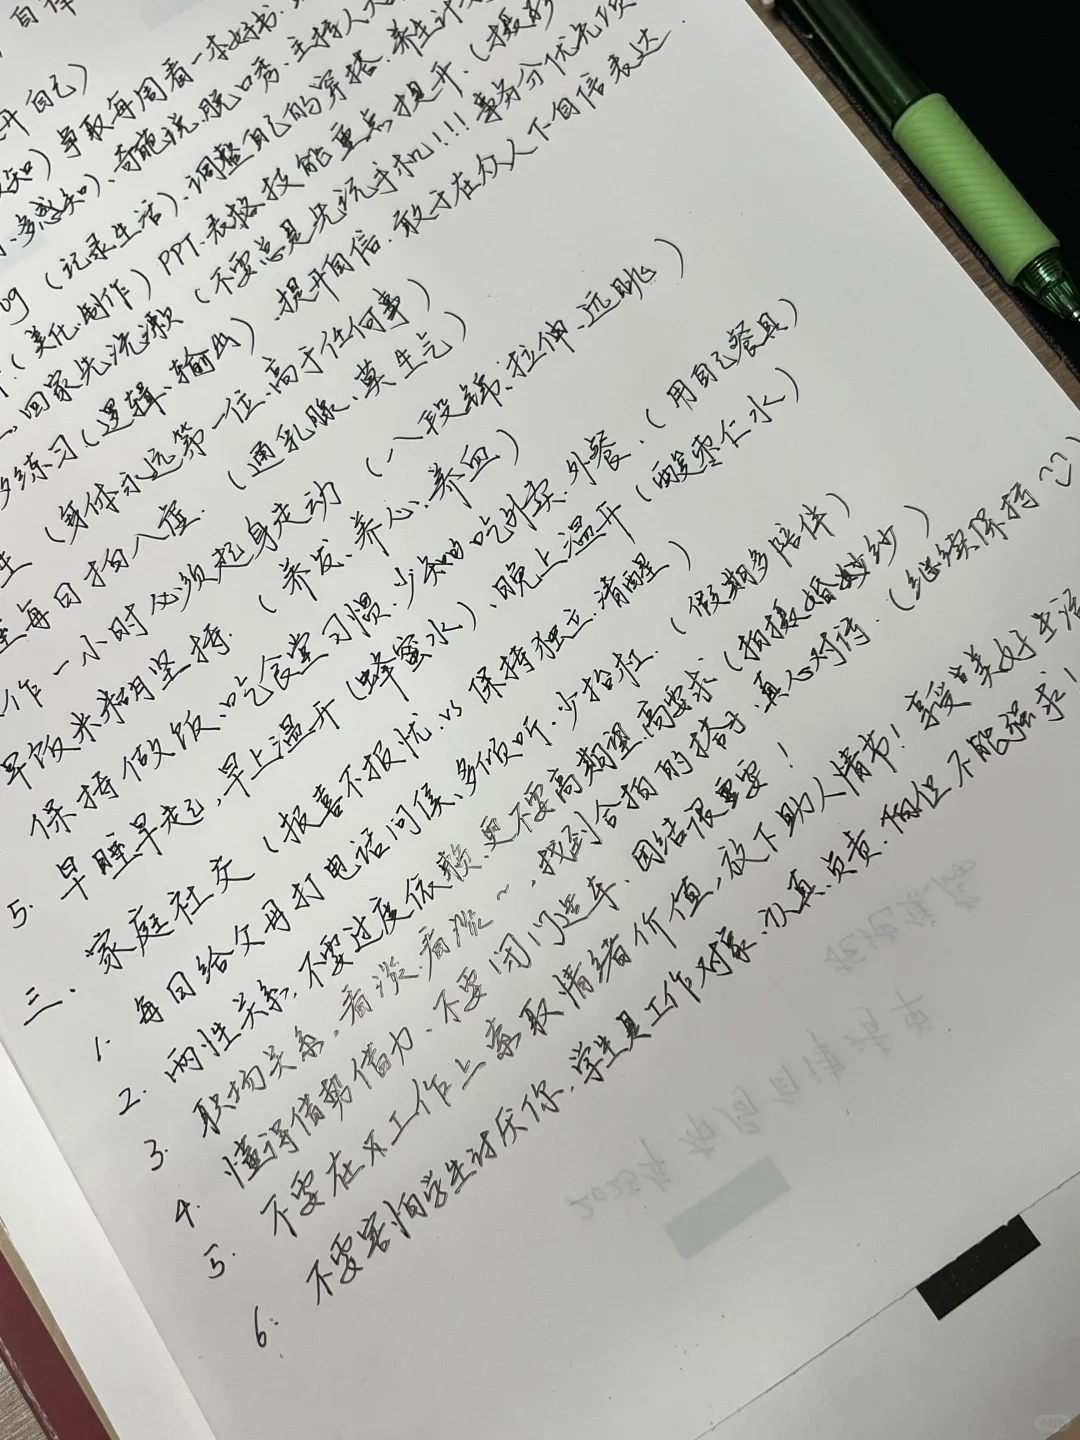 自律
提升自己)
知) 争取每周看一本好书.
、多感知)、奇葩说、脱口秀、主持人大
og (记录生活)、调整自己的穿搭、养生计划
(美化、制作) PPT、表格技能重点提升、(摄影
、回家先洗漱 (不要总是先玩手机!!! 事务分优先项
多练习(逻辑、输出)、提升自信、敢于在众人下自信表达
生 (身体永远第一位、高于任何事)
每日拍八虚. (通乳腺、莫生气)
作一小时必须起身走动 (八段锦、拉伸、远眺)
早饭米糊坚持. (养发、养心、养血)
保持做饭、吃食堂习惯、少和吃外卖、外餐、(用自己餐具)
5. 早睡早起, 早上温开(蜂蜜水)、晚上温开(酸枣仁水)
三、家庭社交 (报喜不报忧 vs 保持独立、清醒)
1. 每日给父母打电话问候、多倾听、少抬杠. (假期多陪伴)
2. 两性关系, 不要过度依赖、更不要高期望、高要求 (拍摄婚纱)
3. 职场关系, 看淡、看淡~, 找到合拍的搭子、真心对待. (继续保持)
4. 懂得借势借力、不要闭门造车、团结很重要!
5. 不要在工作上索取情绪价值, 放下助人情节! 享受美好生活
6. 不要害怕学生讨厌你, 学生是工作对象、认真、负责. 但不能强求!
2025年